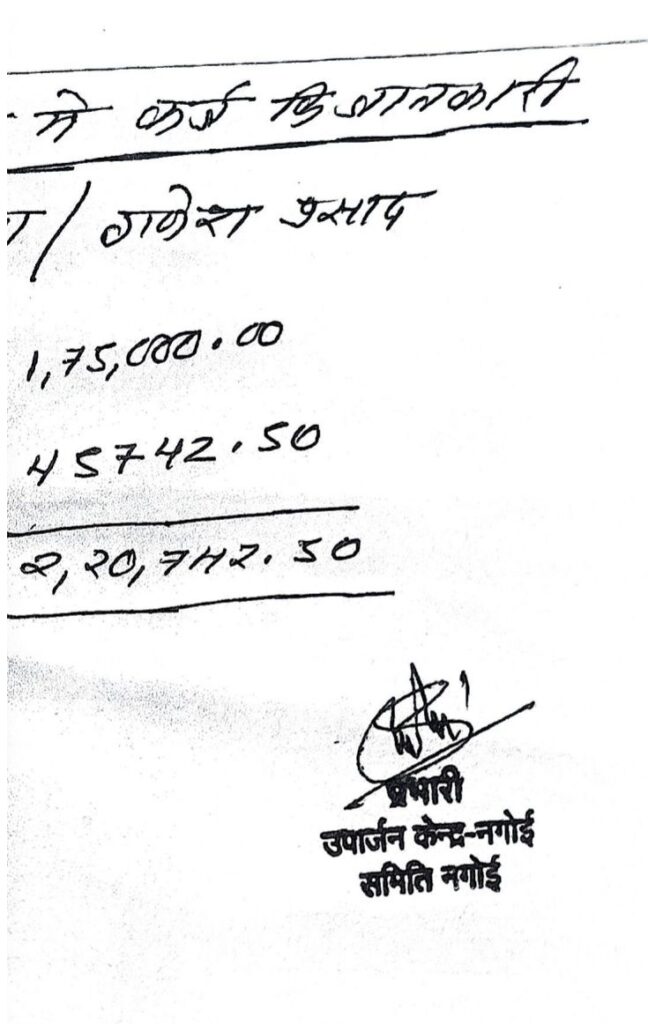 में कर्ज कि जानकारी
/ गणेश प्रसाद
1,75,000.00
45742.50
2,20,742.50
प्रभारी
उपार्जन केन्द्र-नगोई
समिति नगोई